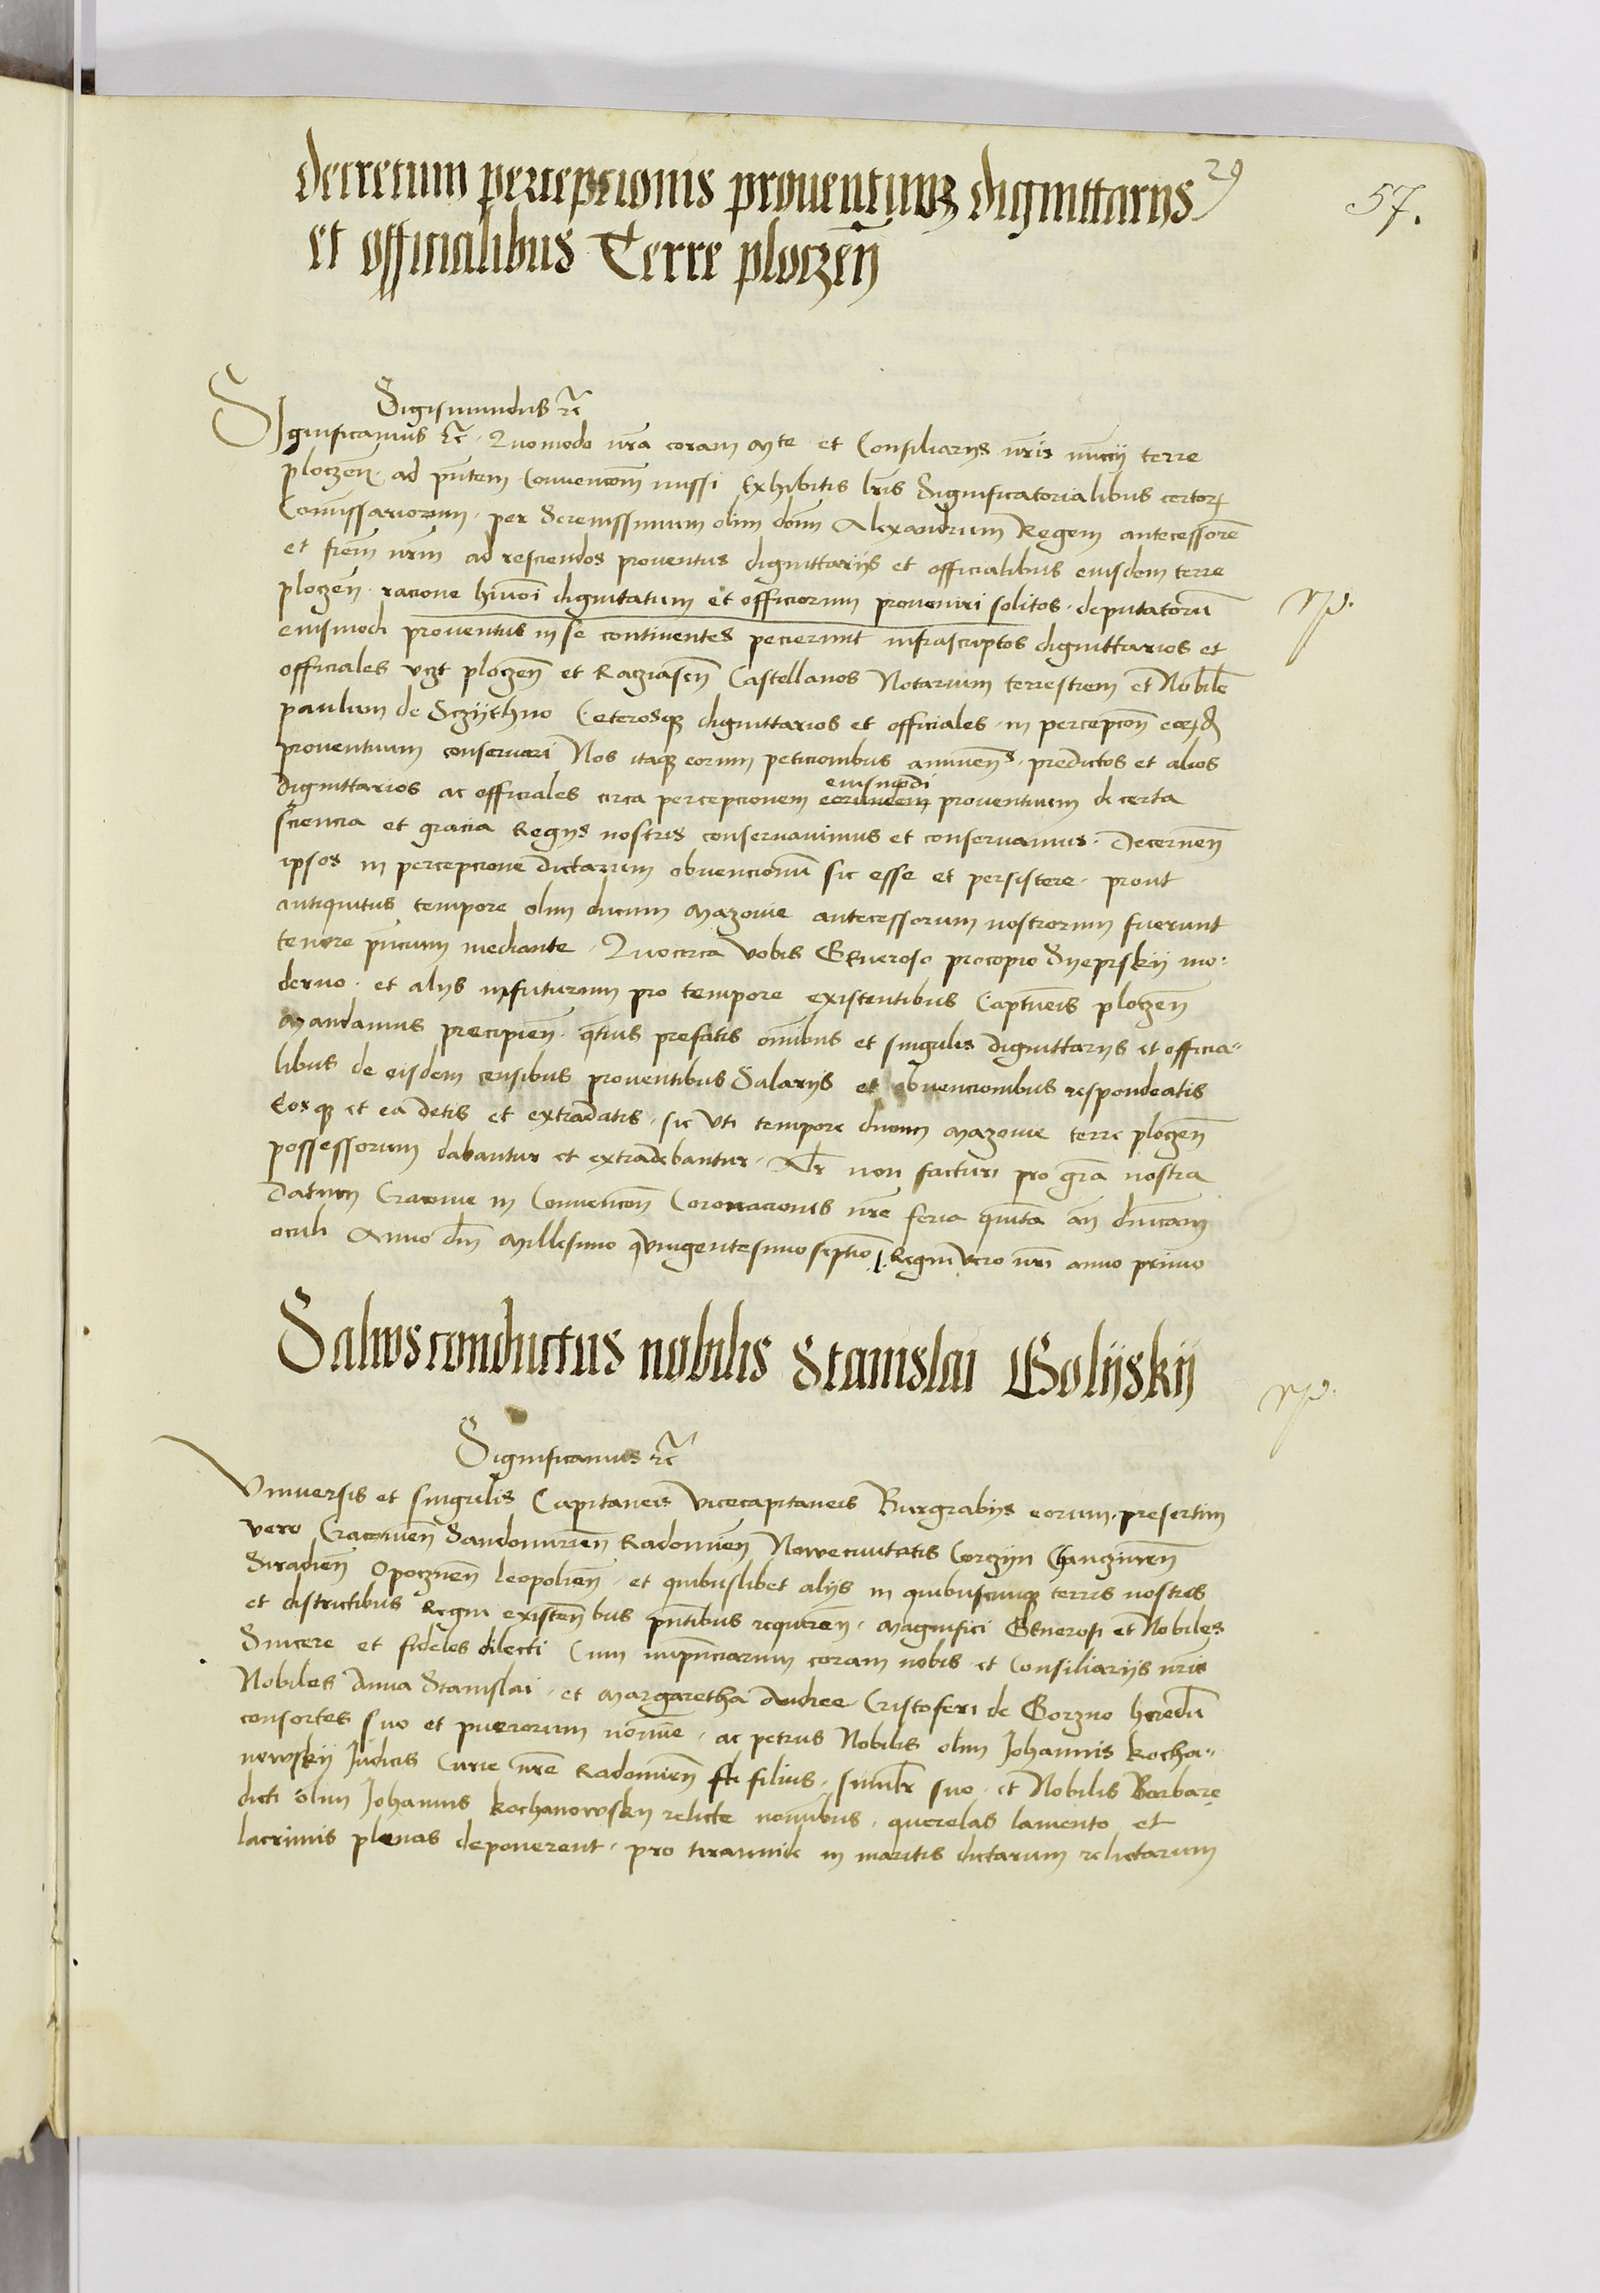 decretum percepcionis proventuum dignittarijs
29
57.
et officialibus Terre ploczen̄
Sigismundus etc̄
Significamus etc̄. Quomodo nr̄a coram Mte et Consiliarijs nr̄is nuncij terre
ploczen̄. ad pn̄tem Convencōm missi Exhibitis lr̄is Significatorialibus certor̄
Comissariorum. per Serenissimum olim dōm Alexandrum Regem antecessorē
et frēm nr̄m ad resciendos proventus dignittarijs et officialibus eiusdem terre
ploczen̄. racione hm̄oi dignitatum et officiorum provenire solitos. deputatorū
eiusmodi proventus in se continentes pecierunt infrascriptos dignittarios et
officiales vzt ploczen̄ et Racziasen̄ Castellanos Notarium terrestrem et Nobilē
paulum de Sczijthno Ceterosq̄ dignittarios et officiales. in percepcōn eor̄d
proventuum conservari Nos itaq̄ eorum peticionibus annuen̄s. predictos et alios
eiusmodi
dignittarios ac officiales circa percepcionem eorundem proventuum de certa
sciencia et gracia Regijs nostris conservavimus et conservamus. Decernen̄
ipsos in percepcione dictarum obvencionū sic esse et persistere. prout
antiquitus tempore olim ducum Mazovie antecessorum nostrorum fuerunt
tenore pn̄cium mediante. Quocirca vobis Generoso procopio Syeprskij mo=
derno. et alijs in futurum pro tempore existentibus Captn̄eis ploczen̄
Mandamus precipien̄. q̄tius prefatis omībus et singulis dignittarijs et officia=
libus de eisdem censibus proventibus Salarijs et obvencionibus respondeatis
Eosq̄ et ea detis et extradatis. sic uti tempore ducum Mazovie terre ploczen̄
possessorum dabantur et extradebantur. Alr̄ non facturi pro gr̄a nostra
Datum Cracovie in Convencōn Coronacionis nr̄e feria quinta an̄ dn̄icam
oculi Anno dn̄i Millesimo quingentesimo septīo Regni vero nr̄i anno primo
Salwsconductus nobilis Stanislai Golijskij
Significamus etc̄
Universis et singulis Capitaneis Vicecapitaneis Burgrabijs eorum. presertim
vero Cracovien̄ Sandomirien̄ Radomien̄ Nowecivitatis Corczijn Chanczinen̄
Siradien̄ Opocznen̄ Leopolien̄. et quibuslibet alijs in quibuscumq̄ terris nostris
et districtibus Regni existen̄bus pn̄tibus requiren̄. Magnifici Generosi et Nobiles
Sincere et fideles dilecti Cum inpn̄ciarum coram nobis et Consiliarijs nr̄is
Nobiles Anna Stanislai. et Margaretha Andree Cristoferi de Gorzno heredū
consortes suo et puerorum nomīe. ac petrus Nobilis olim Johannis Kocha=
nowskij Judicis Curie nr̄e Radomien̄ filius. simlr̄ suo. et Nobilis Barbare
dicti olim Johannis Kochanowskij relicte nomībus. querelas lamento et
lacrimis plenas deponerent. pro tirannide in maritis dictarum relictarum